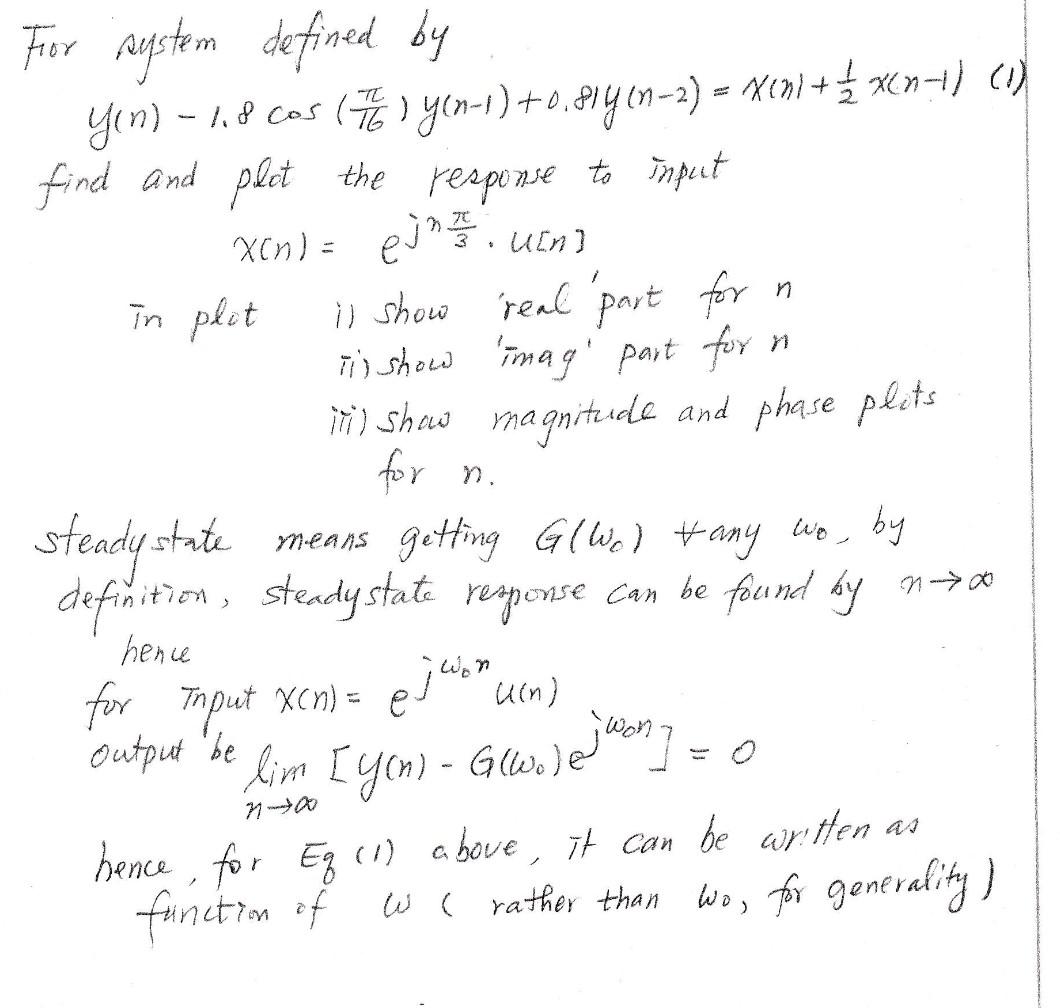 For system defined by
y(n) - 1.8 cos (π/16) y(n-1) + 0.81y(n-2) = x(n) + 1/2 x(n-1) (1)
find and plot the response to input
x(n) = e^{jnπ/3} . u[n]
in plot i) show 'real' part for n
ii) show 'imag' part for n
iii) show magnitude and phase plots
for n.
steady state means getting G(ω₀) ∀ any ω₀, by
definition, steady state response can be found by n→∞
hence
for input x(n) = e^{jω₀n} u(n)
output be lim_{n→∞} [y(n) - G(ω₀)e^{jω₀n}] = 0
hence, for Eq (1) above, it can be written as
function of ω ( rather than ω₀, for generality)